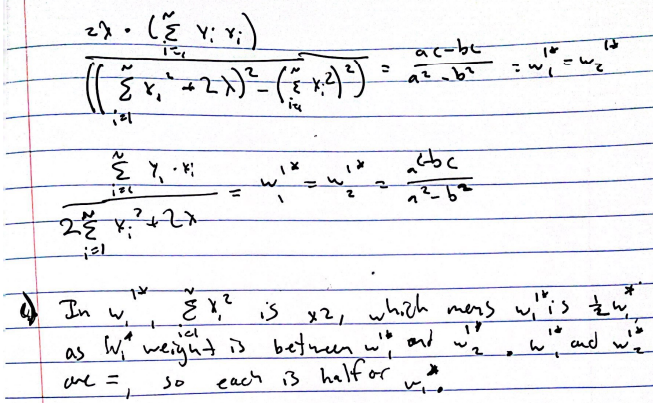 2λ · (Σ_{i=1}^{n} y_i x_i) / ((Σ_{i=1}^{n} x_i² + 2λ)² - (Σ_{i=1}^{n} x_i²)²) = (ac-bc) / (a²-b²) = w_1^{1*} = w_2^{1*}
Σ_{i=1}^{n} y_i · x_i / (2Σ_{i=1}^{n} x_i² + 2λ) = w_1^{1*} = w_2^{1*} = (ac-bc) / (a²-b²)
In w_1^{1*}, Σ_{i=1}^{n} x_i² is x2, which mens w_1^{1*} is ½ w_1^*,
as W_1^* weight is between w_1^{1*} and w_2^{1*}. w_1^{1*} and w_2^{1*}
are =, so each is half or w_1^*.